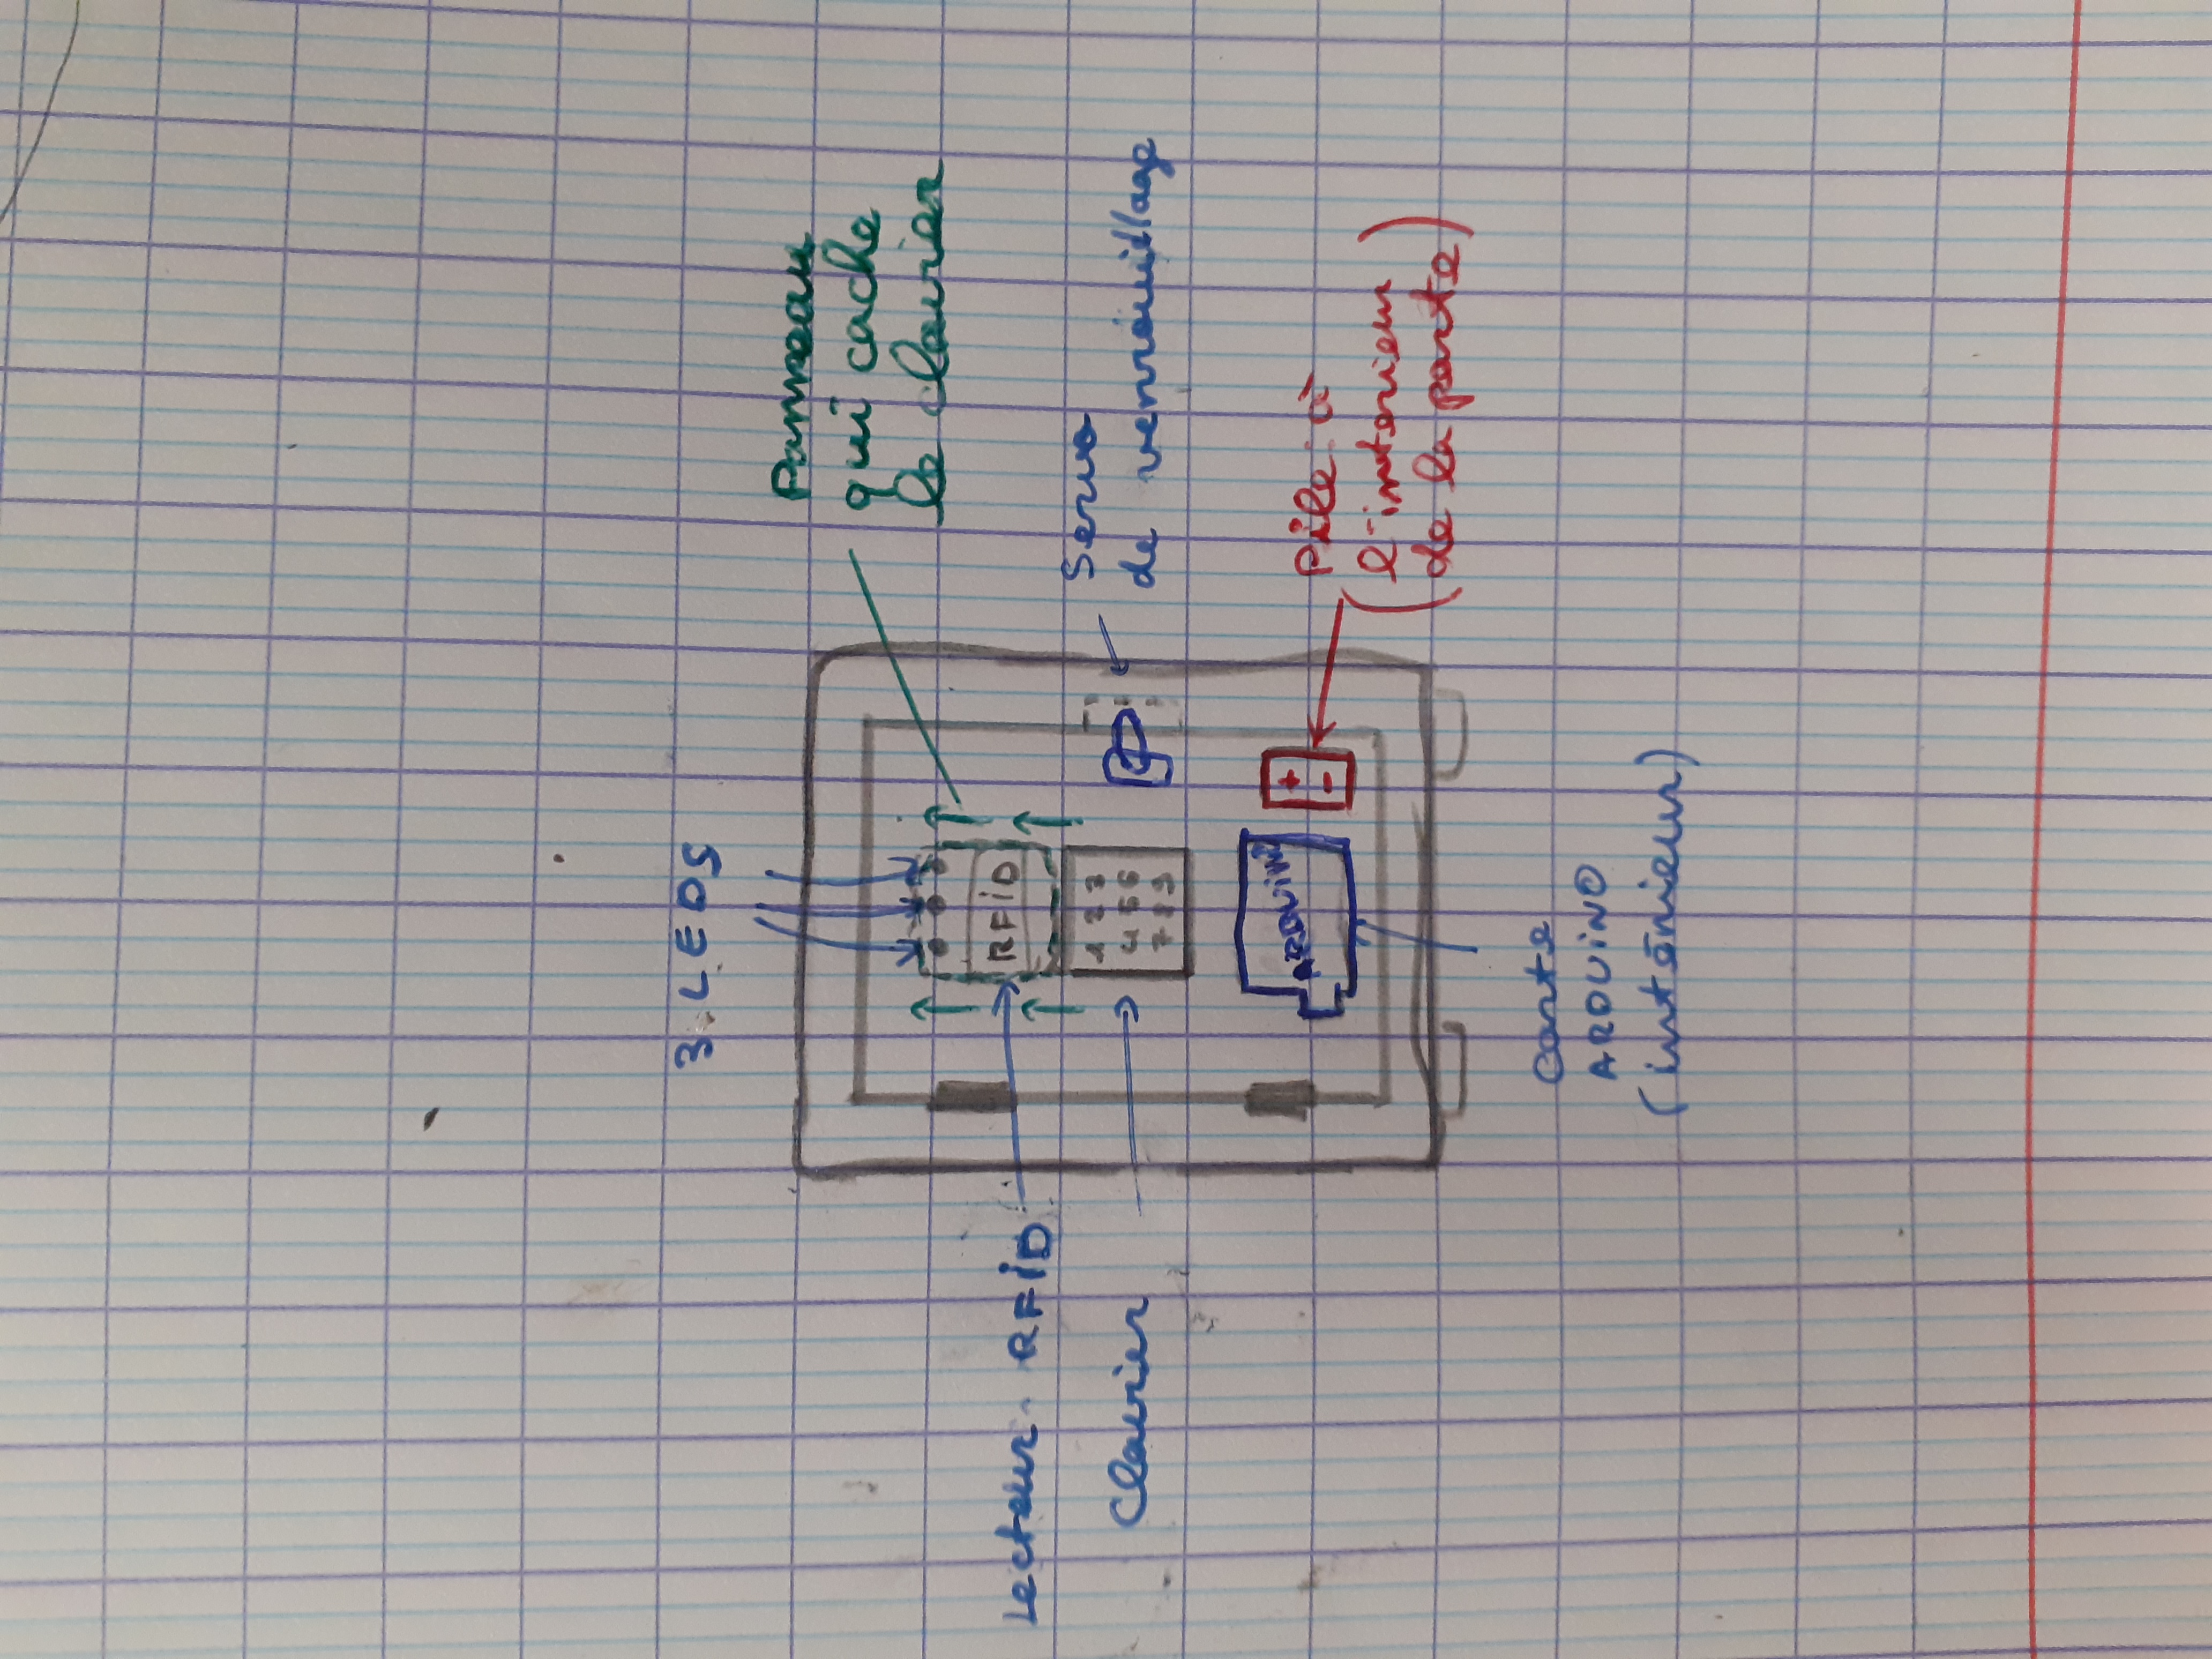 3 LEDS
Panneau
qui cache
le clavier
Lecteur RFiD
RFiD
Clavier
1 2 3
4 5 6
7 8 9
Servo
de verrouillage
ARDUiNO
+
-
Pile à
(l'interieur
de la porte)
carte
ARDUiNO
(intérieur)